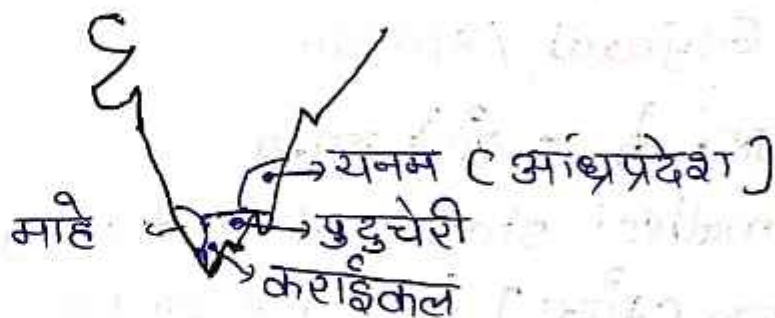 यनम (आंध्रप्रदेश)
माहे
पुदुचेरी
कराईकल